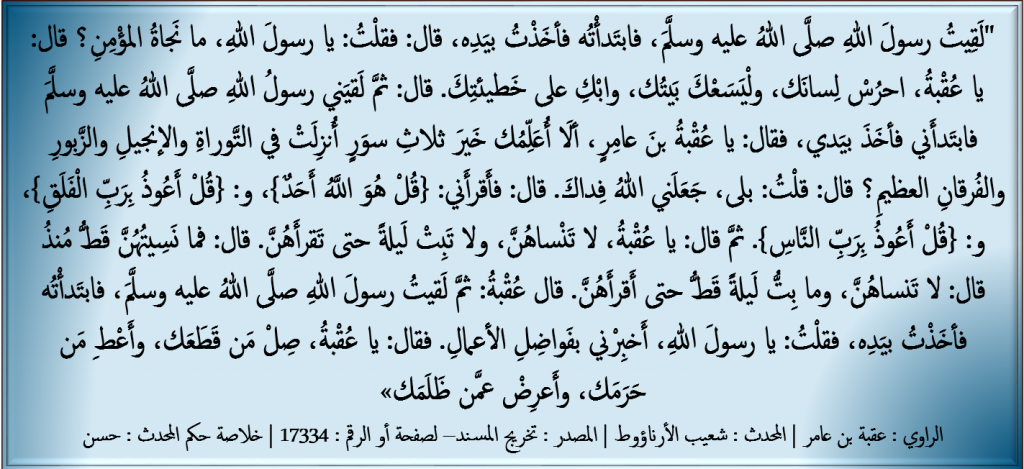 "لَقِيتُ رسولَ اللهِ صلَّى اللهُ عليه وسلَّمَ، فابتَدأْتُه فأخَذْتُ بيَدِه، قال: فقلْتُ: يا رسولَ اللهِ، ما نَجاةُ المؤْمِنِ؟ قال:
يا عُقْبةُ، احرُسْ لِسانَك، ولْيَسَعْكَ بَيتُك، وابْكِ على خَطيئتِكَ. قال: ثمَّ لَقيَني رسولُ اللهِ صلَّى اللهُ عليه وسلَّمَ
فابتَدأَني فأخَذَ بيَدي، فقال: يا عُقْبةُ بنَ عامِرٍ، ألَا أُعَلِّمُك خَيرَ ثلاثِ سوَرٍ أُنزِلَتْ في التَّوراةِ والإنجيلِ والزَّبورِ
والفُرقانِ العظيمِ؟ قال: قلْتُ: بلى، جَعَلَني اللهُ فِداكَ. قال: فأَقرأَني: {قُلْ هُوَ اللَّهُ أَحَدٌ}، و: {قُلْ أَعُوذُ بِرَبِّ الْفَلَقِ}،
و: {قُلْ أَعُوذُ بِرَبِّ النَّاسِ}. ثمَّ قال: يا عُقْبةُ، لا تَنْساهُنَّ، ولا تَبِتْ لَيلةً حتى تَقرأَهُنَّ. قال: فما نَسِيتُهُنَّ قَطُّ مُنذُ
قال: لا تَنساهُنَّ، وما بِتُّ لَيلةً قَطُّ حتى أَقرأَهُنَّ. قال عُقْبةُ: ثمَّ لَقيتُ رسولَ اللهِ صلَّى اللهُ عليه وسلَّمَ، فابتَدأْتُه
فأخَذْتُ بيَدِه، فقلْتُ: يا رسولَ اللهِ، أَخبِرْني بفَواضِلِ الأعمالِ. فقال: يا عُقْبةُ، صِلْ مَن قَطَعَك، وأَعْطِ مَن
حَرَمَك، وأَعرِضْ عمَّن ظَلَمَك»
الراوي : عقبة بن عامر | المحدث : شعيب الأرناؤوط | المصدر : تخريج المسند– لصفحة أو الرقم : 17334 | خلاصة حكم المحدث : حسن